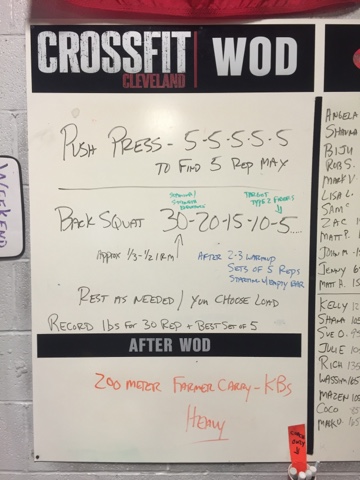 CROSSFIT
CLEVELAND
WOD
PUSH PRESS - 5-5-5-5-5
TO FIND 5 REP MAX
TARGET
TYPE 2 FIBERS
BACK SQUAT 30-20-15-10-5...
APPROX 1/3-1/2 1RM
AFTER 2-3 WARMUP
SETS OF 5 REPS
STARTING W/ EMPTY BAR
REST AS NEEDED / YOU CHOOSE LOAD
RECORD lbs FOR 30 REP + BEST SET OF 5
AFTER WOD
200 METER FARMER CARRY - KBs
HEAVY
WEEKEND
ANGELA
SHAWNA
BIJU
ROB S.
MARK V
LISA L.
SAM
ZAC
MATT P.
JOHN M.
JENNY
MATT H.
KELLY
SHANA
SUE O.
JULIE
RICH
WASSIM
MAZEN
COCO
MARK D.